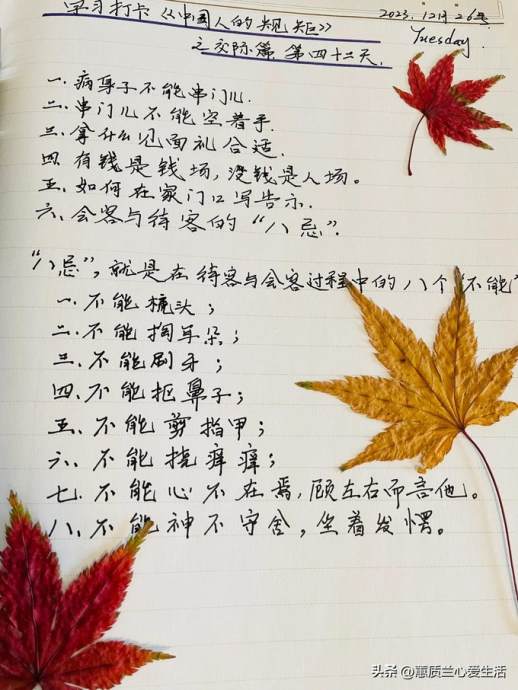 学习打卡《中国人的规矩》
2023.12月26号
之交际篇 第四十二天.
Tuesday.
一.病身子不能串门儿.
二.串门儿不能空着手.
三.拿什么见面礼合适.
四.有钱是钱场,没钱是人场。
五.如何在家门口写告示.
六、会客与待客的“八忌”.
“八忌”,就是在待客与会客过程中的八个“不能”
一.不能梳头;
二.不能掏耳朵;
三.不能刷牙;
四.不能抠鼻子;
五、不能剪指甲;
六、不能挠痒痒;
七.不能心不在焉,顾左右而言他。
八、不能神不守舍,坐着发愣。
头条 @蕙质兰心爱生活